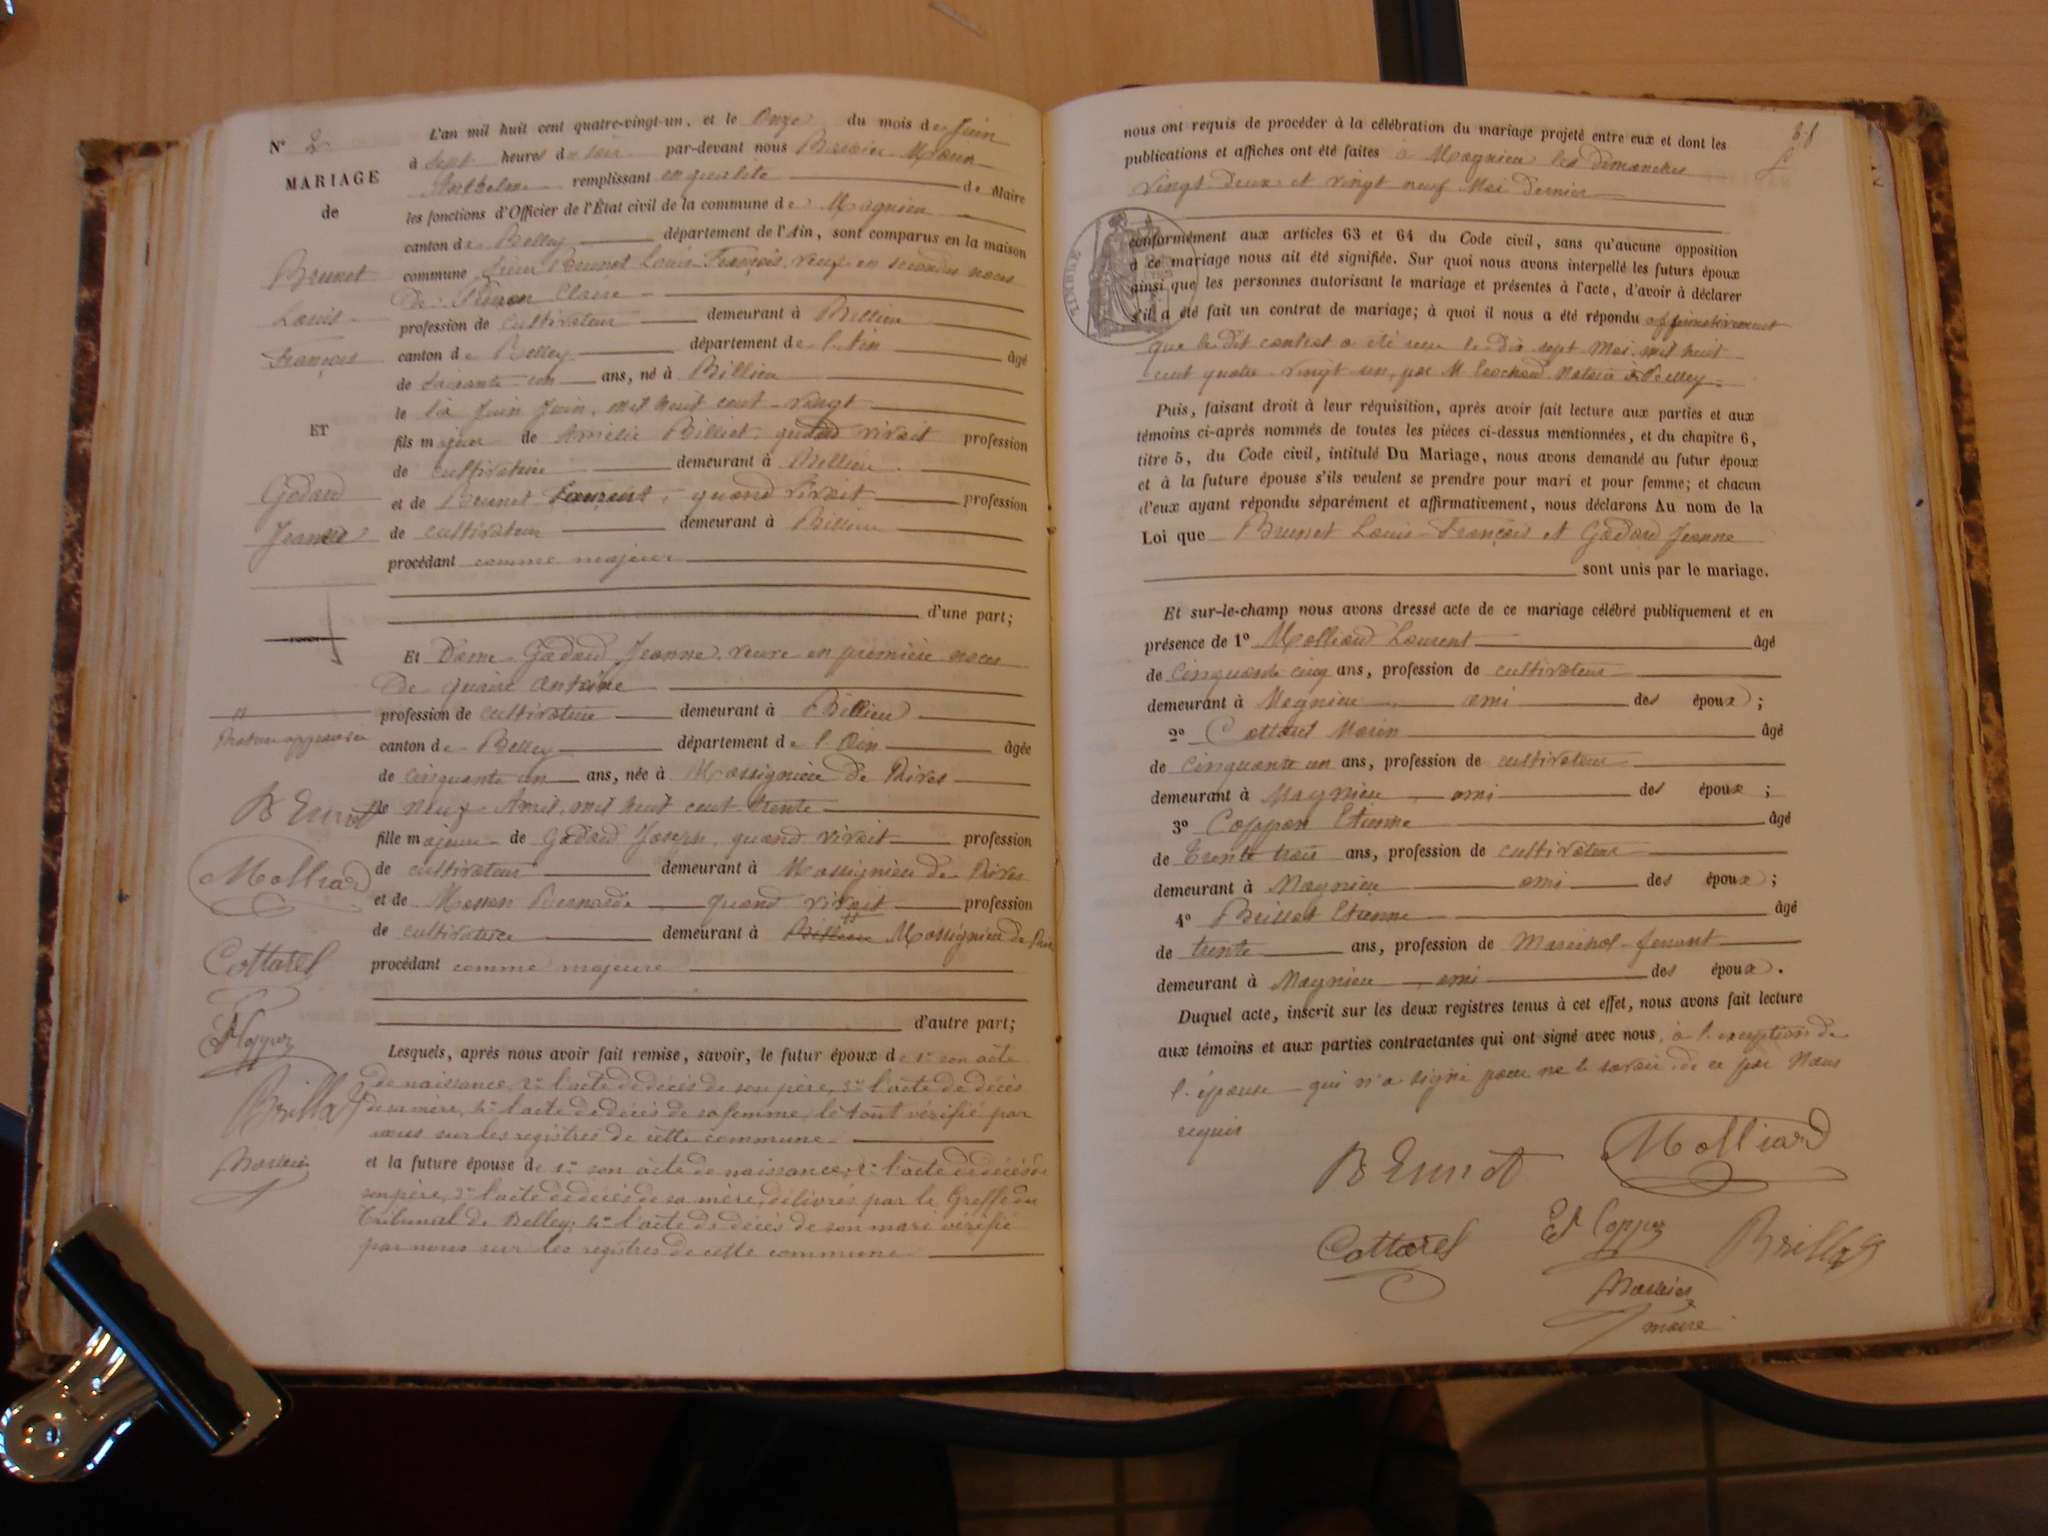 N° 2
MARIAGE
de
Brunet
Louis
François
ET
Godard
Jeanne
L'an mil huit cent quatre-vingt-un, et le Onze du mois de Juin
à Sept heures du soir par-devant nous Marin
Anthelme remplissant en qualité de Maire
les fonctions d'Officier de l'État civil de la commune de Magnieu
canton de Belley département de l'Ain, sont comparus en la maison
commune Sieur Brunet Louis-François, veuf en secondes noces
de Claire
profession de cultivateur demeurant à Billieu
canton de Belley département de l'Ain âgé
de soixante-un ans, né à Billieu
le Juin Juin, mil huit cent-vingt
fils majeur de Amélie Billiet, quand vivait profession
de cultivatrice demeurant à Billieu
et de Brunet Laurent, quand vivait profession
de cultivateur demeurant à Billieu
procédant comme majeur
d'une part;
Et Dame Godard Jeanne, veuve en première noces
de Antoine
profession de cultivatrice demeurant à Billieu
canton de Belley département de l'Ain âgée
de cinquante un ans, née à Massignieu de Rives
le neuf Avril mil huit cent trente
fille majeure de Godard Joseph, quand vivait profession
de cultivateur demeurant à Massignieu de Rives
et de quand vivait profession
de cultivatrice demeurant à Billieu Massignieu de Rives
procédant comme majeure
d'autre part;
Lesquels, après nous avoir fait remise, savoir, le futur époux de 1° son acte
de naissance, 2° l'acte de décès de son père, 3° l'acte de décès
de sa mère, 4° l'acte de décès de sa femme, le tout vérifié par
nous sur les registres de cette commune
et la future épouse de 1° son acte de naissance, 2° l'acte de décès de
son père, 3° l'acte de décès de sa mère, délivrés par le Greffe du
Tribunal de Belley; 4° l'acte de décès de son mari vérifié
par nous sur les registres de cette commune
Brunet
Molliard
Cottarel
Et Coppoz
nous ont requis de procéder à la célébration du mariage projeté entre eux et dont les
publications et affiches ont été faites à Magnieu les dimanches
vingt-deux et vingt neuf Mai dernier
TIMBRE
conformément aux articles 63 et 64 du Code civil, sans qu'aucune opposition
à ce mariage nous ait été signifiée. Sur quoi nous avons interpellé les futurs époux
ainsi que les personnes autorisant le mariage et présentes à l'acte, d'avoir à déclarer
s'il a été fait un contrat de mariage; à quoi il nous a été répondu affirmativement
que le dit contrat a été reçu le dix sept Mai mil huit
cent quatre-vingt un, par M. Notaire à Belley
Puis, faisant droit à leur réquisition, après avoir fait lecture aux parties et aux
témoins ci-après nommés de toutes les pièces ci-dessus mentionnées, et du chapitre 6,
titre 5, du Code civil, intitulé Du Mariage, nous avons demandé au futur époux
et à la future épouse s'ils veulent se prendre pour mari et pour femme; et chacun
d'eux ayant répondu séparément et affirmativement, nous déclarons Au nom de la
Loi que Brunet Louis-François et Godard Jeanne
sont unis par le mariage.
Et sur-le-champ nous avons dressé acte de ce mariage célébré publiquement et en
présence de 1° Molliard Laurent âgé
de cinquante cinq ans, profession de cultivateur
demeurant à Magnieu ami des époux;
2° Cottarel Marin âgé
de cinquante un ans, profession de cultivateur
demeurant à Magnieu ami des époux;
3° Etienne âgé
de trente trois ans, profession de cultivateur
demeurant à Magnieu ami des époux;
4° Etienne âgé
de trente ans, profession de Maréchal-ferrant
demeurant à Magnieu ami des époux.
Duquel acte, inscrit sur les deux registres tenus à cet effet, nous avons fait lecture
aux témoins et aux parties contractantes qui ont signé avec nous, à l'exception de
l'épouse qui n'a signé pour ne le savoir, de ce par nous
requis
Brunet
Molliard
Cottarel
Et Coppoz
maire